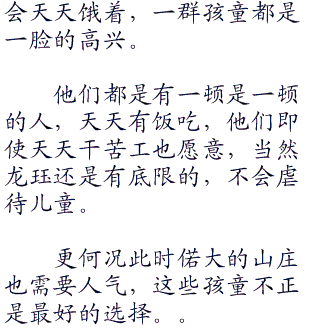 会天天饿着，一群孩童都是
一脸的高兴。
他们都是有一顿是一顿
的人，天天有饭吃，他们即
使天天干苦工也愿意，当然
龙珏还是有底限的，不会虐
待儿童。
更何况此时偌大的山庄
也需要人气，这些孩童不正
是最好的选择。。